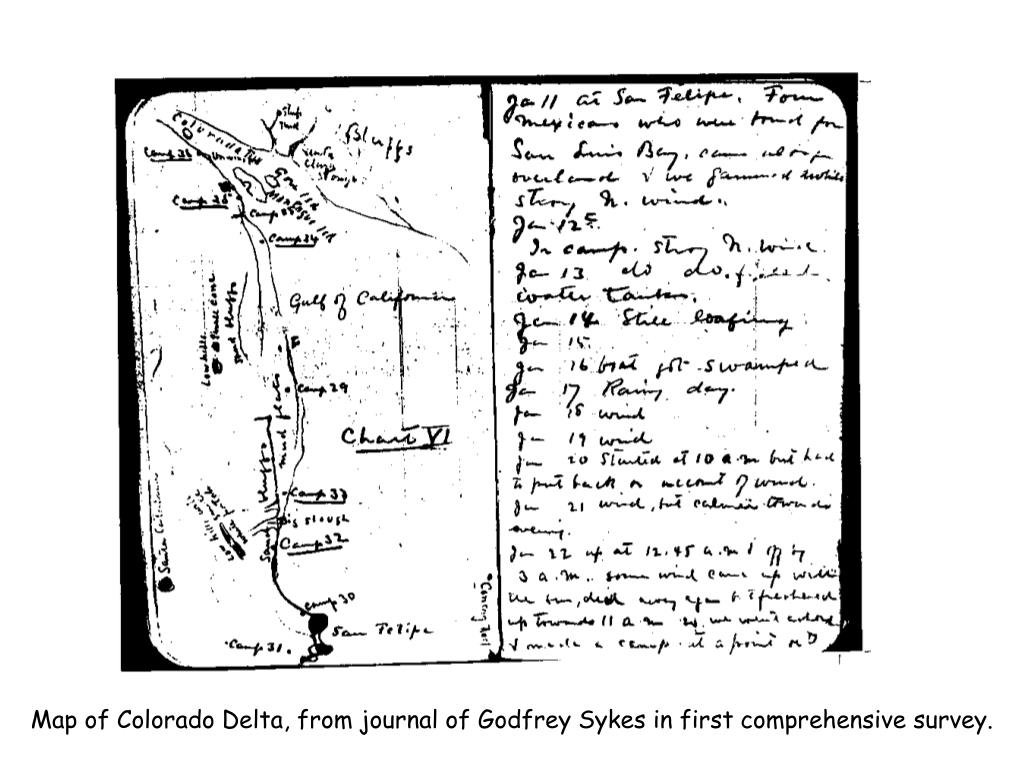 Colorado Rv
Bluffs
Santa
Clara
Slough
Gore Isld
Montague Isld
Camp 36
Camp 35
Camp 34
Gulf of California
Low hills
Sand bluffs
Camp 29
mud flats
Chart VI
Camp 33
Big Slough
Camp 32
Sandy bluffs
Low hills
Santa Catarina
Camp 30
San Felipe
Camp 31.
Jan 11 at San Felipe. Four
Mexicans who were bound for
San Luis Bay, came along
overland & we gammed while
strong N. wind.
Jan 12
In camp. Strong N. wind.
Jan 13 do do. filled
water tanks.
Jan 14 Still loafing
Jan 15
Jan 16 boat got swamped
Jan 17 Rainy day.
Jan 18 wind
Jan 19 wind
Jan 20 Started at 10 a.m but had
to put back on account of wind.
Jan 21 wind, but calmer towards
evening.
Jan 22 up at 12.45 a.m & off by
3 a.m.. some wind came up with
the sun, died away again & freshened
up towards 11 a m so we went ashore
& made a camp at a point on
Map of Colorado Delta, from journal of Godfrey Sykes in first comprehensive survey.